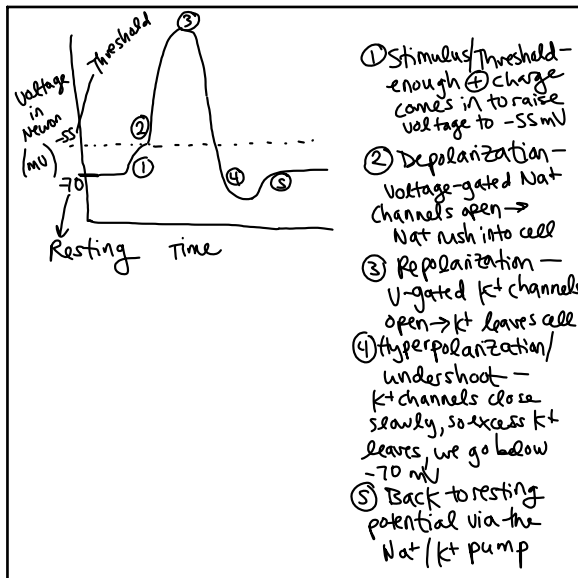 Voltage
in
Neuron
(mV)
-55
Threshold
-70
Resting
Time
①
②
③
④
⑤
① Stimulus/Threshold-
enough ⊕ charge
comes in to raise
voltage to -55mV
② Depolarization-
voltage-gated Na+
channels open→
Na+ rush into cell
③ Repolarization-
V-gated K+ channels
open→K+ leaves cell
④ Hyperpolarization/
undershoot-
K+ channels close
slowly, so excess K+
leaves, we go below
-70 mV
⑤ Back to resting
potential via the
Na+/K+ pump